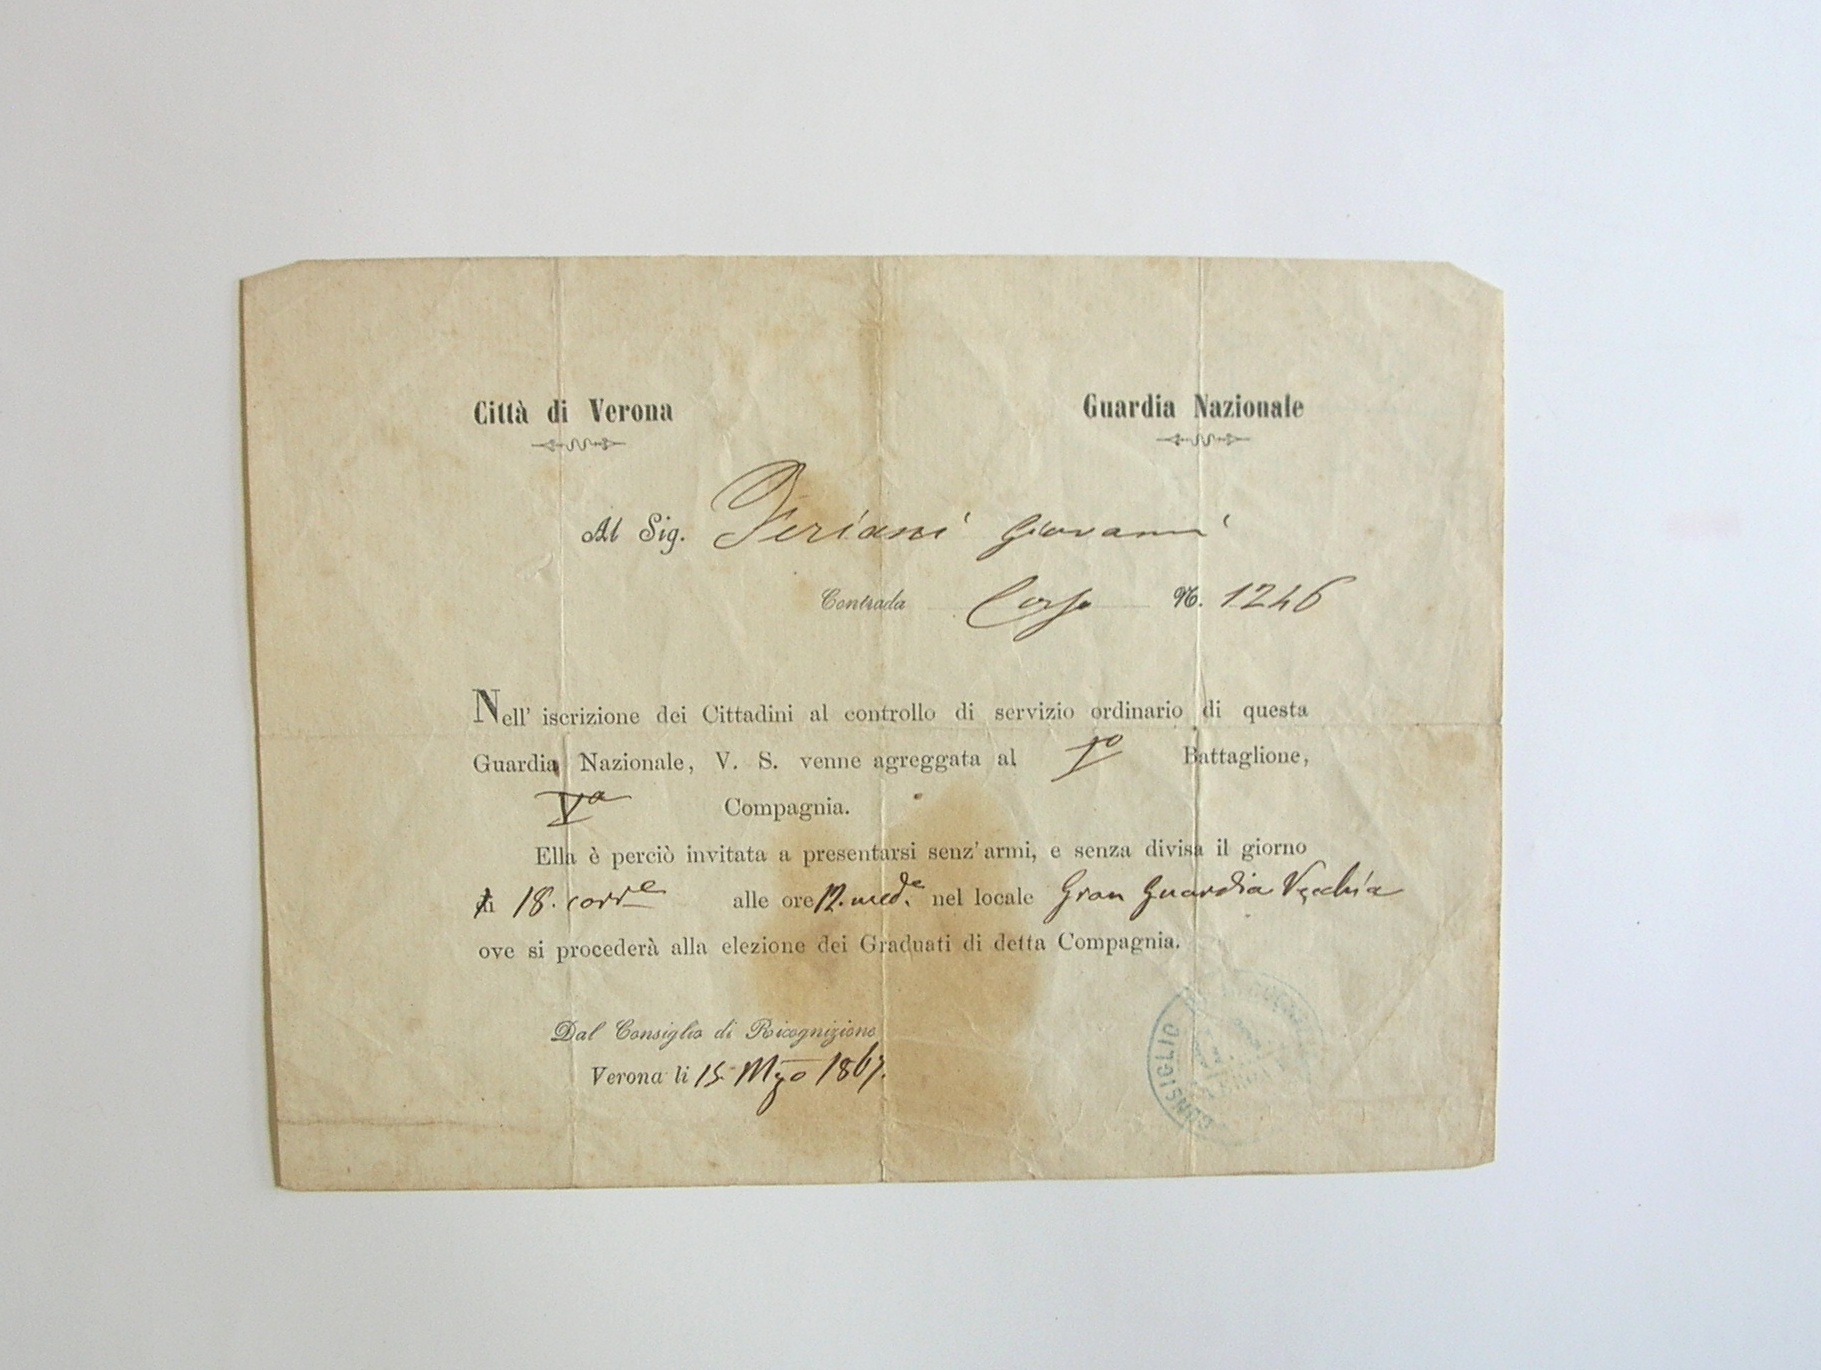 Città di Verona
Guardia Nazionale
Al Sig. Feriani Giovanni
Contrada Corso N. 1246
Nell' iscrizione dei Cittadini al controllo di servizio ordinario di questa
Guardia Nazionale, V. S. venne agreggata al I° Battaglione,
Vª Compagnia.
Ella è perciò invitata a presentarsi senz' armi, e senza divisa il giorno
di 18. corr.e alle ore 12. med.e nel locale Gran Guardia Vecchia
ove si procederà alla elezione dei Graduati di detta Compagnia.
Dal Consiglio di Ricognizione
Verona li 15 Mzo 1867.
CONSIGLIO